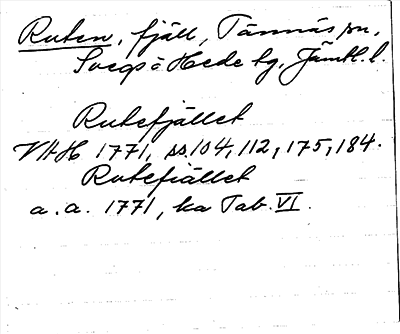 Ruten, fjäll, Tännäs sn,
Svegs o Hede tg, Jämtl. l.
Rutefjället
VAH 1771, ss. 104, 112, 175, 184.
Rutefiället
a. a. 1771, ka Tab. VI.